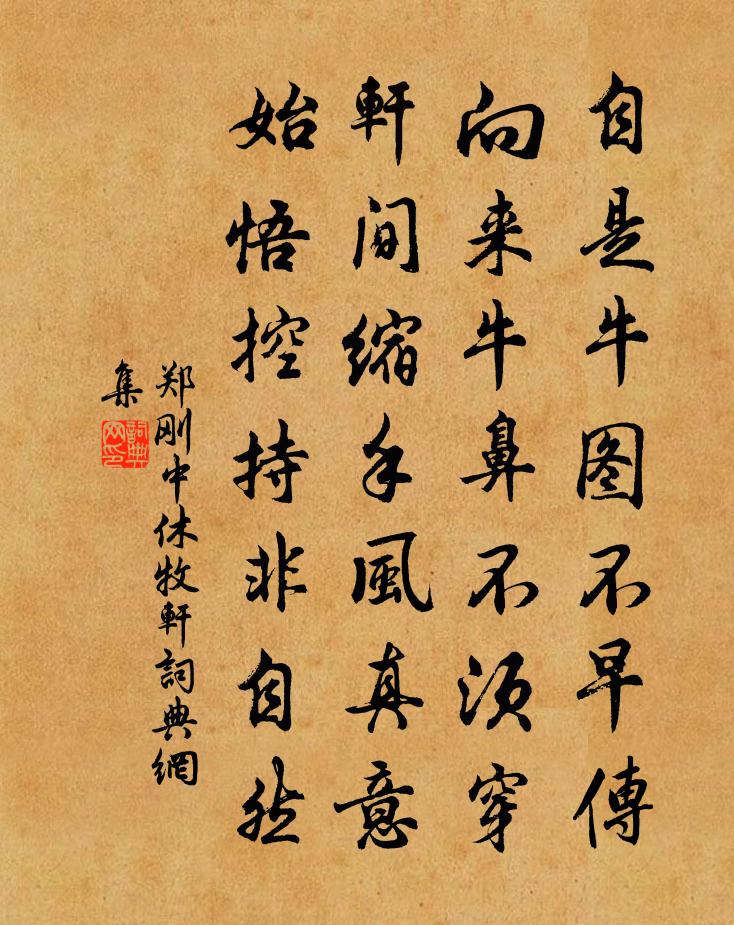 自是牛图不早傳
向来牛鼻不须穿
軒間縮手風真意
始悟控持非自然
郑刚中休牧軒詞典網
集
詞典网印